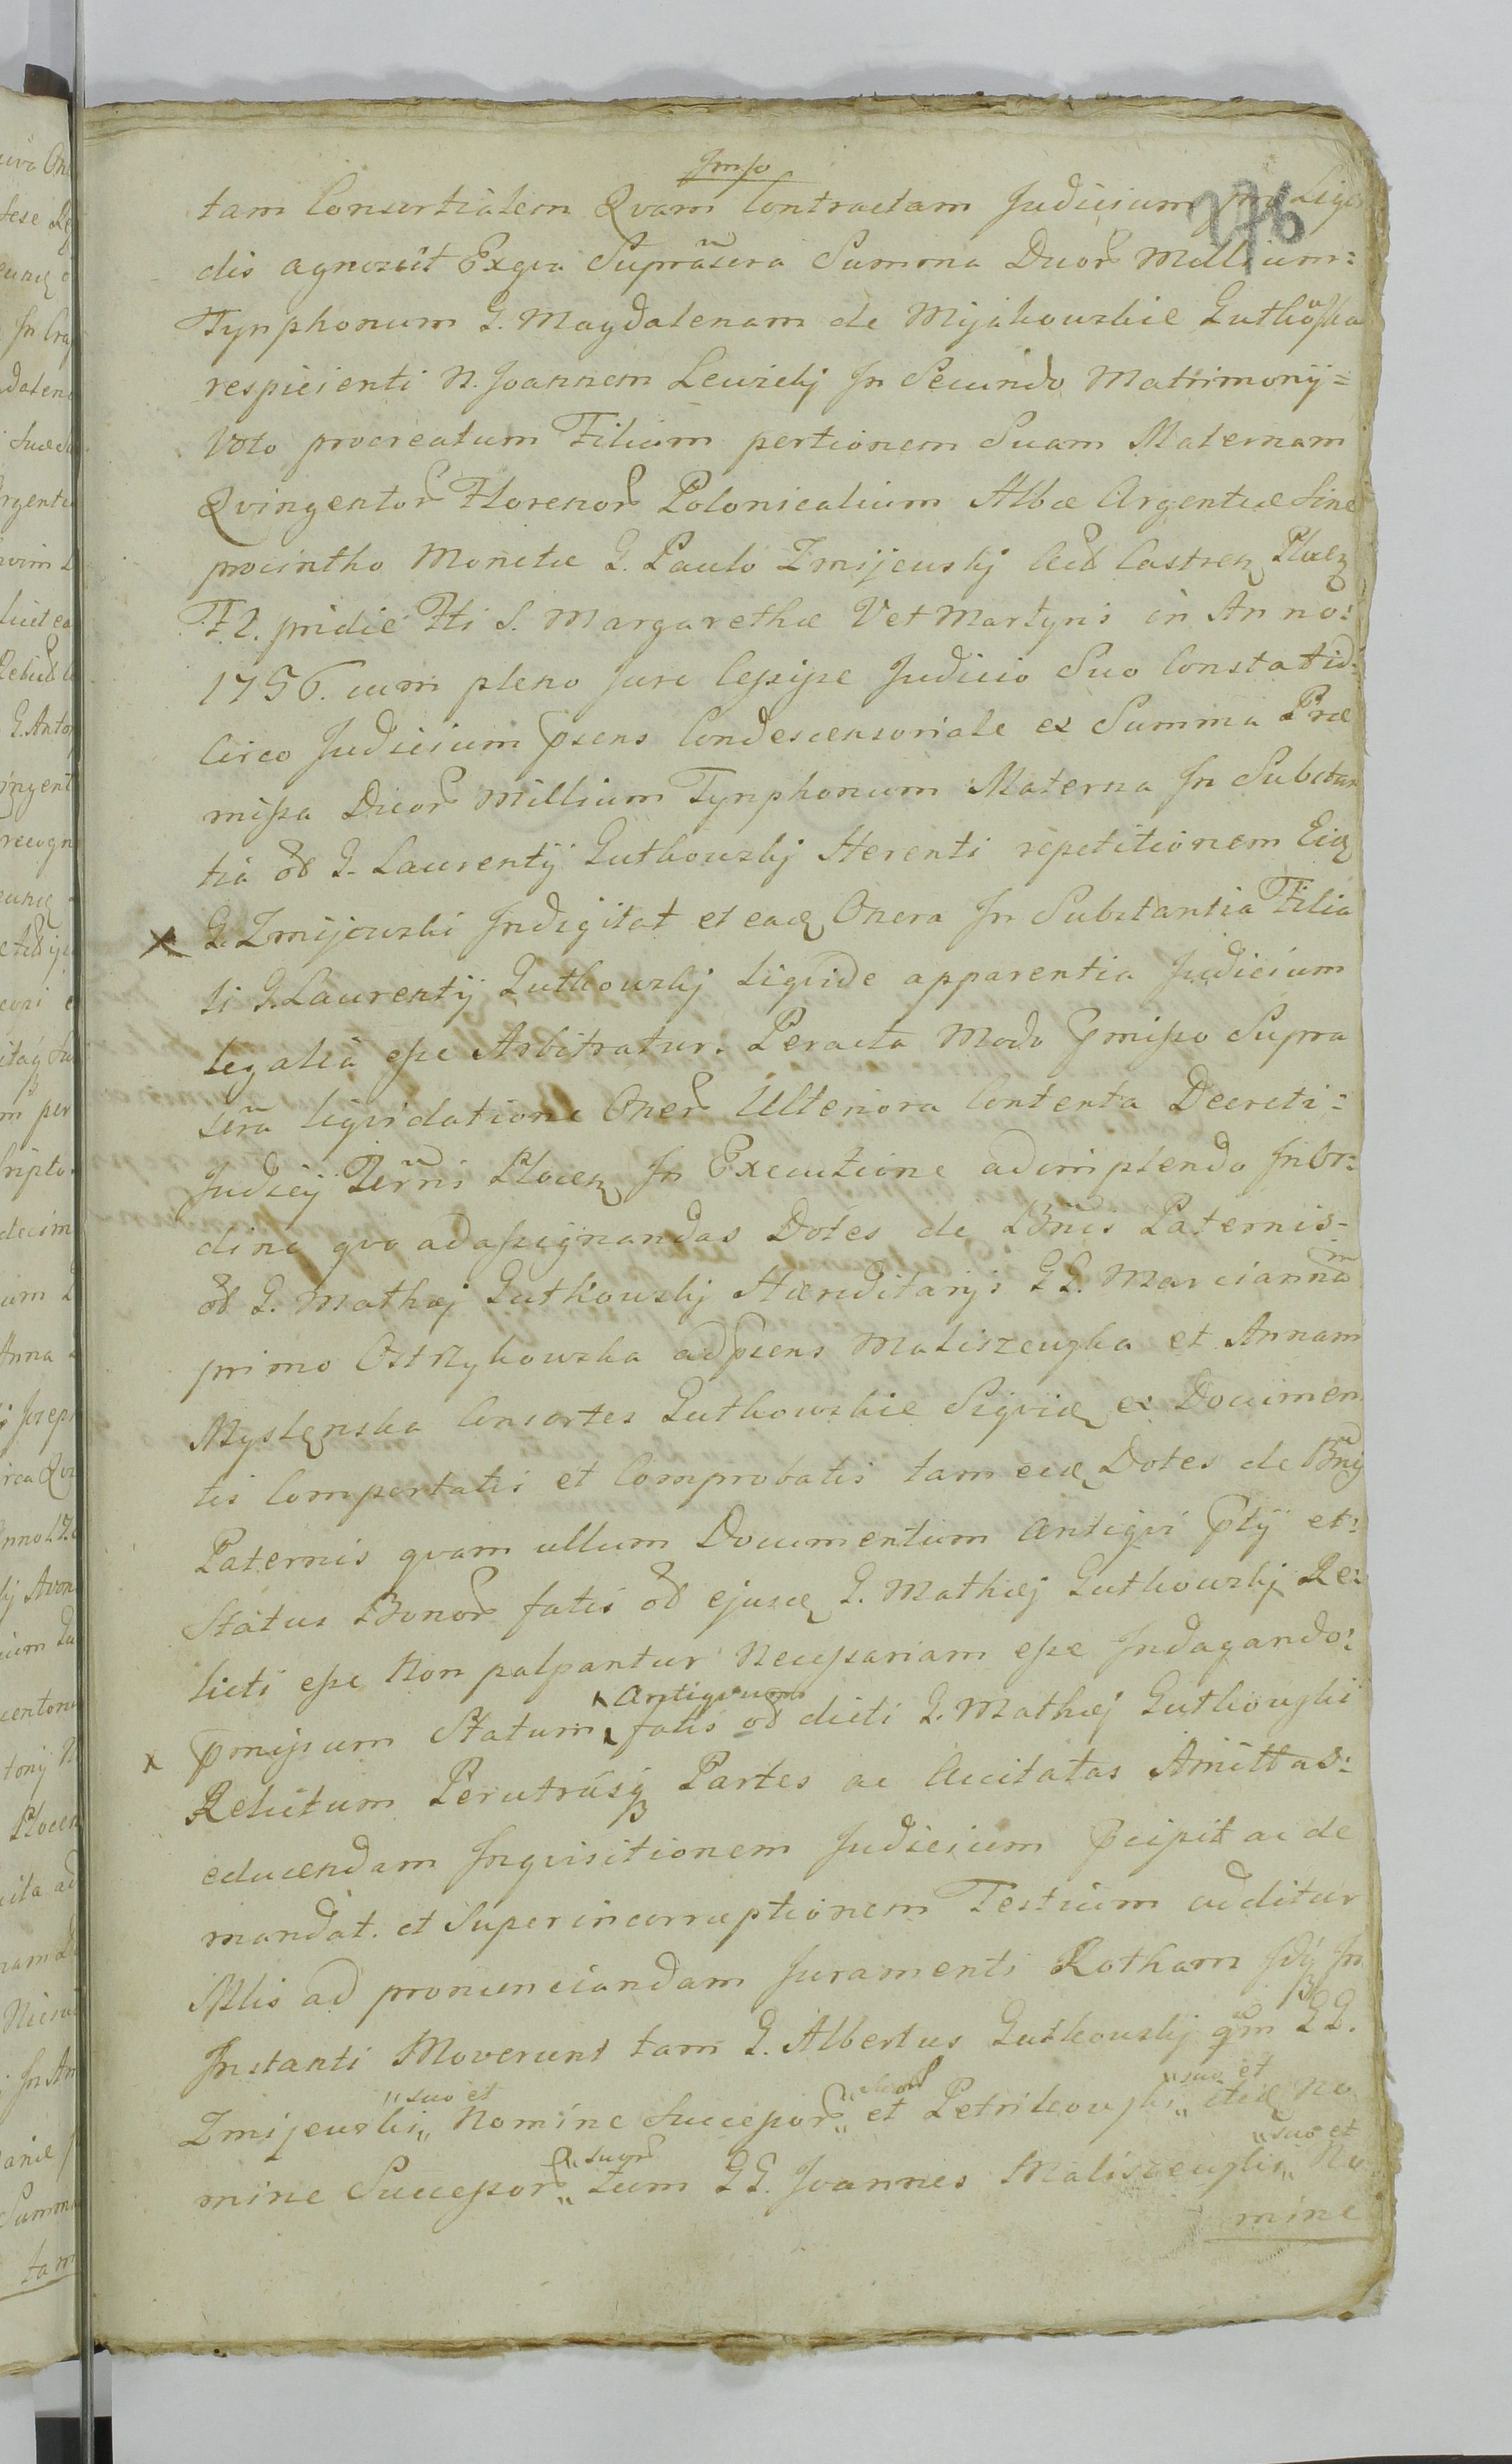 276
tam Consortialem Qvam Contractam Judicium pro Liqvi
dis agnoscit Exqva Suprascra Summa Duor Millium:
Tynphonum G. Magdalenam de Mijakowskie Gutkowska
respicienti N. Joannem Lewickj In Secundo Matrimonij=
Voto procreatum Filium portionem Suam Maternam
Qvingentor Florenor Polonicalium Albæ Argenteæ Sine
procintho Monetæ G. Paulo Zmijewskj Castren Plocen
F2. pridie Fti S. Margarethæ V et Martyris in Anno:
1756. cum pleno Jure Cessisse Judicio Suo Constat id:
Circo Judicium psens Condescensoriale ex Summa Præ
missa Duor Millium Tynphonum Materna In Substan
tia G. Laurentij Gutkowskj Herenti repetitionem
G. Zmijewski Indigitat et Onera In Substantia Filia
li G. Laurentij Gutkowskj Liqvide apparentia Judicium
legalia esse Arbitratur. Peracta Modo pmisso Supra
scra liqvidatione Oner Ulteriora Contenta Decreti:
Judicij Plocen In Executione adimplendo In Or:
dine qvo adassignandas Dotes de Bnis Paternis-
G. Mathæj Gutkowskj Hæreditarijs GG. Mariannam
primo Ostrzykowska adpsens Maliszewska et Annam
Consortes Gutkowskie ex Documen
tis Comportatis et Comprobatis tam Dotes de Bnis
Paternis qvam ullum Documentum antiqvi et:
Status Bonor fatis G. Mathæj Gutkowskj Re:
licti esse Non palpantur Necessariam esse Indagando:
pmissum Statum Antiqvum fatis dicti G. Mathæj Gutkowskii
Relictum Perutrusq Partes ac Accitatas Amittas:
educendam Inqvisitionem Judicium pcipit ac de
mandat. et Super incorruptionem Testium additur
ad pronunciandam Juramenti Rotham In
Instanti Moverunt tam G. Albertus Gutkowskj qm GG.
Zmijewski „suo et„ Nomine Successor et Petrikowski „suo et„ No
mine Successor „suor„ tum GG. Joannes Maliszewski „suo et„ No
mine